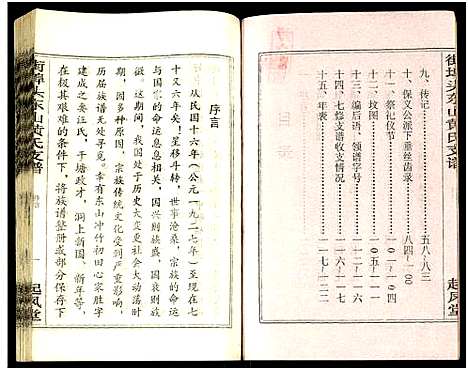 街埠头东山黄氏支谱
起凤堂
九、传记……五八~八三
十、保义公派下垂丝齿录……八四~一〇〇
十一、祭祀仪节……一〇一~一〇四
十二、坟图……一〇五~一一〇
十三、编后语、领谱字号……一一一~一一六
十四、七修支谱收支情况……一一七
十五、年表……一一八~一二二
街埠头东山黄氏支谱
一
起凤堂
序言
从民国十六年（公元一九二七年）至现在七
十又六年矣！星移斗转，世事沧桑，宗族的命运
与国家的命运息息相关，国兴则族盛，国衰则族
衰。这期间，我国处于历史大变更社会大动荡时
期，因多种原因，宗族传统文化受到严重影响，
历届族谱无处寻觅。幸有东山冲竹初田心家胜字
建成之安汪氏，干塘政才，洞上新国，新年等，
在极其艰难的条件下，将族谱整册或部分保存下